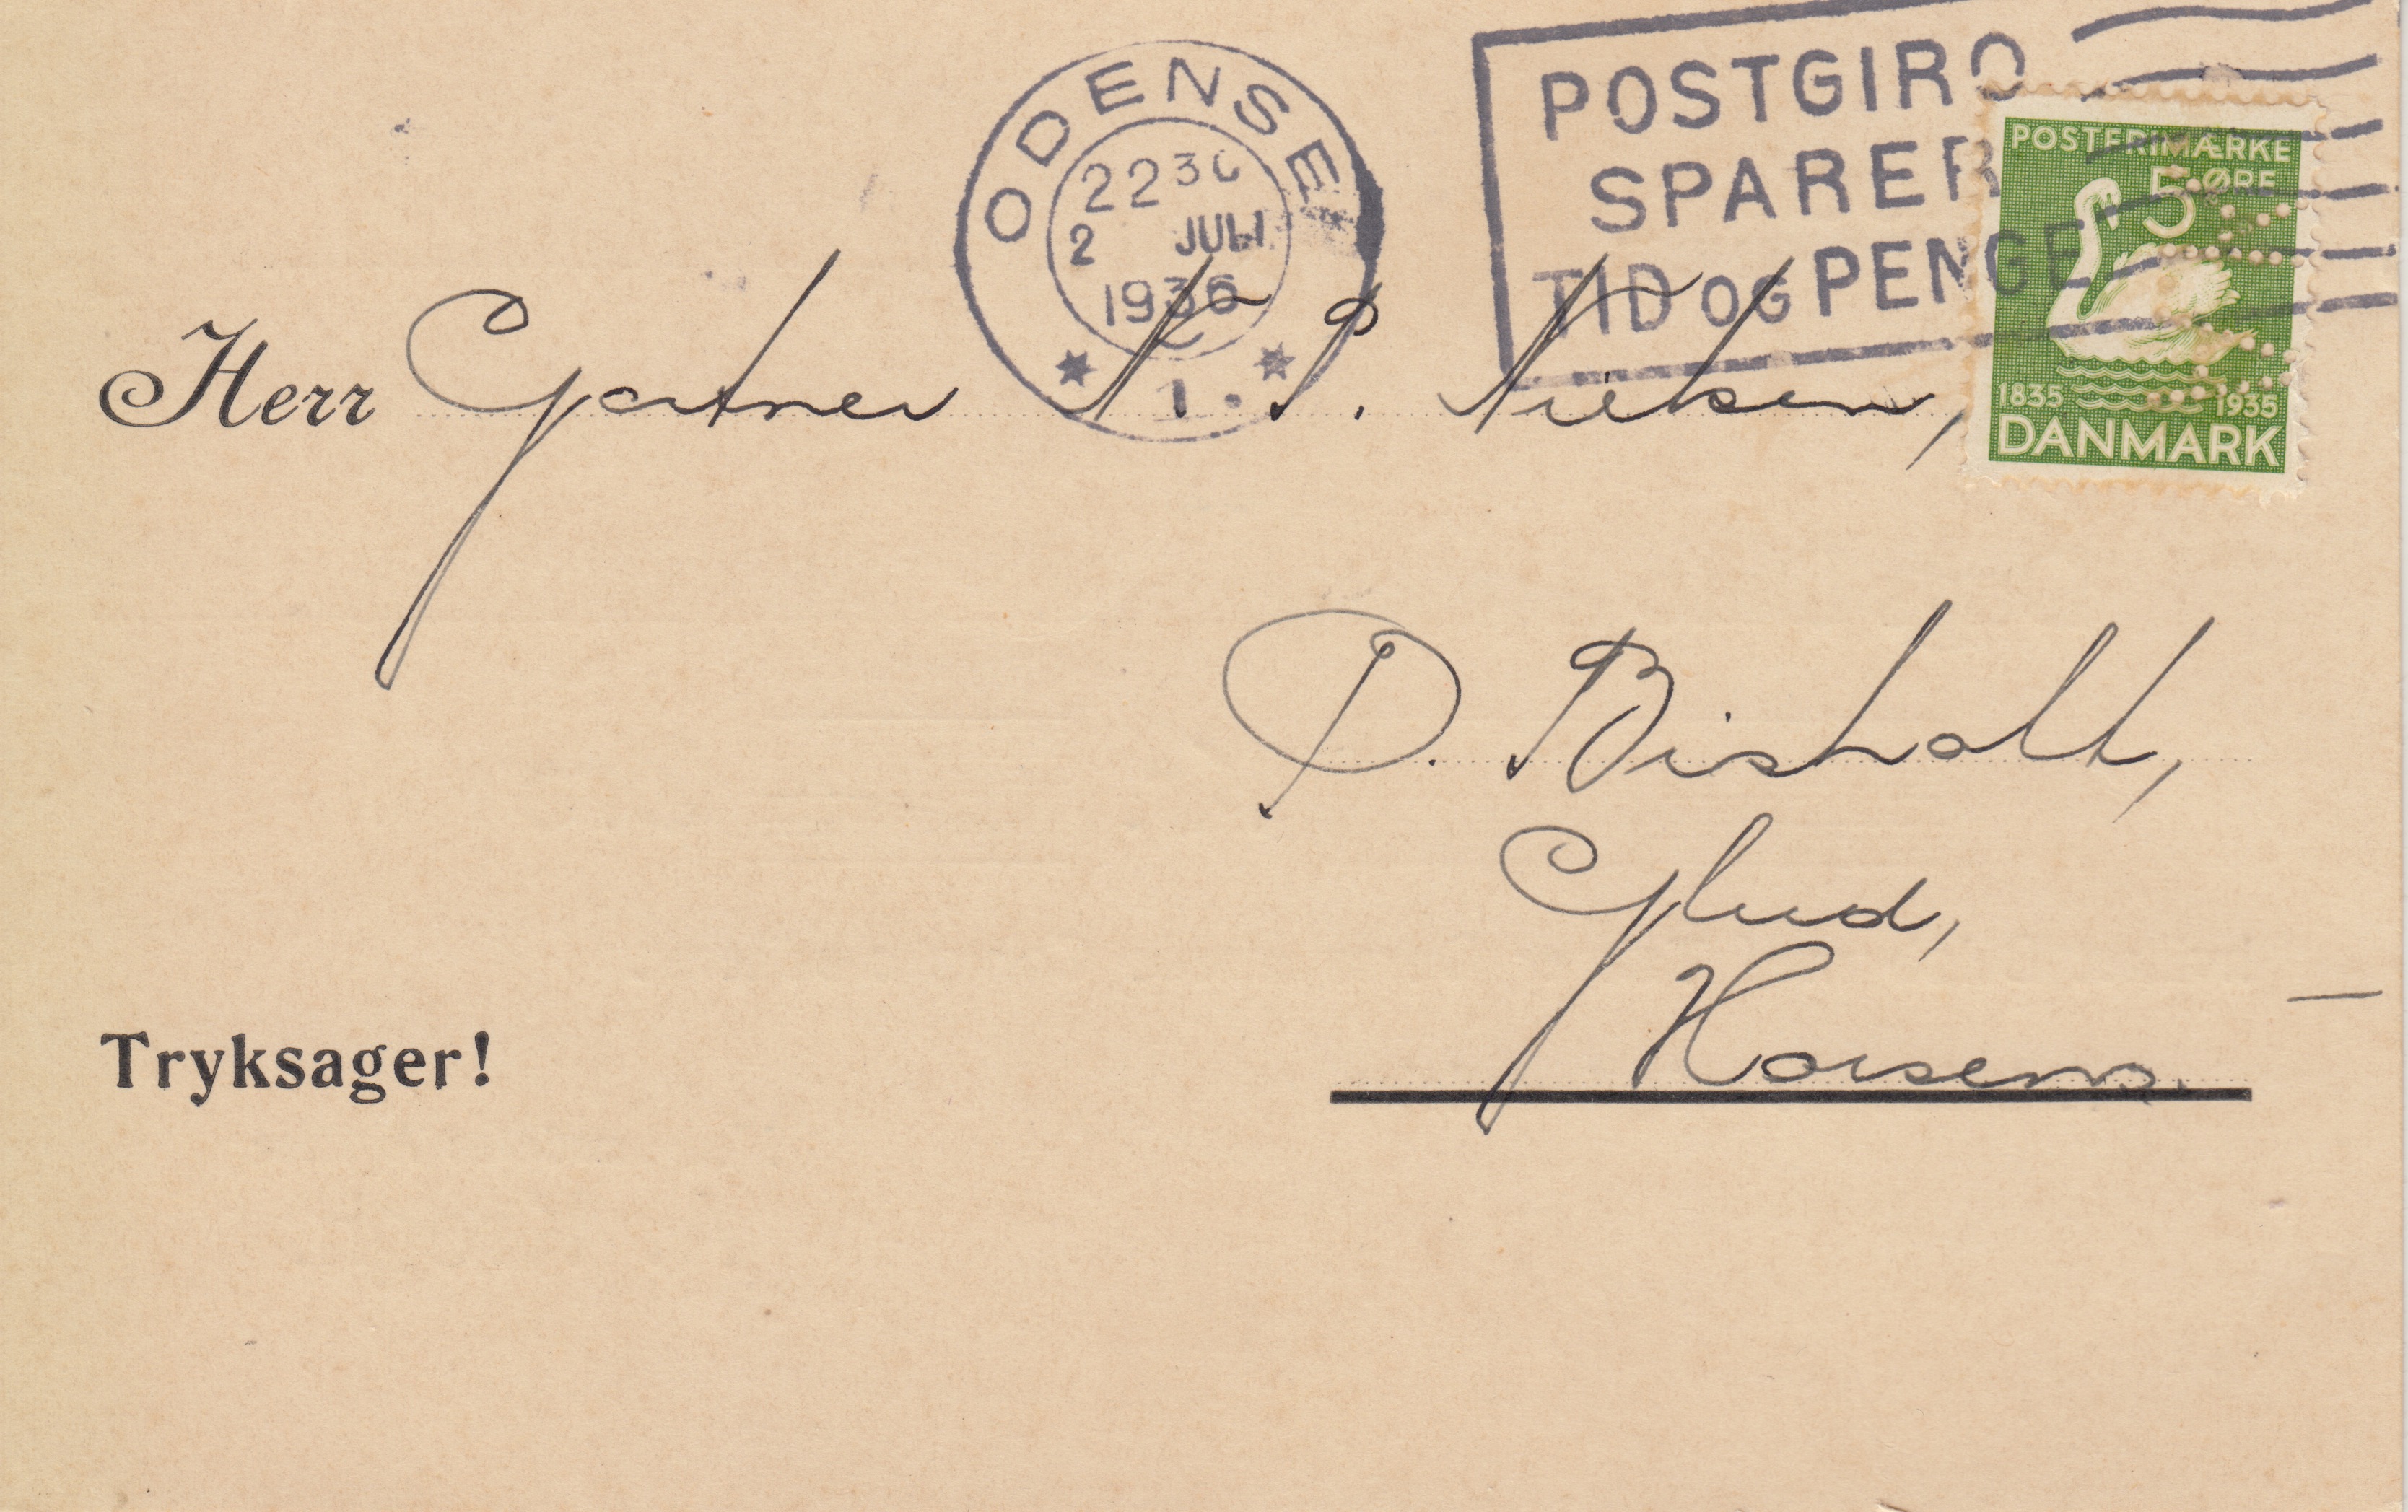 ODENSE
2230
2 JULI
1936
* 1. *
POSTGIRO
SPARER
TID OG PENGE
POSTFRIMÆRKE
5 ØRE
1835 1935
DANMARK
Herr Gartner N. P. Nielsen,
P. Bisholt,
Glud,
Horsens.
Tryksager!